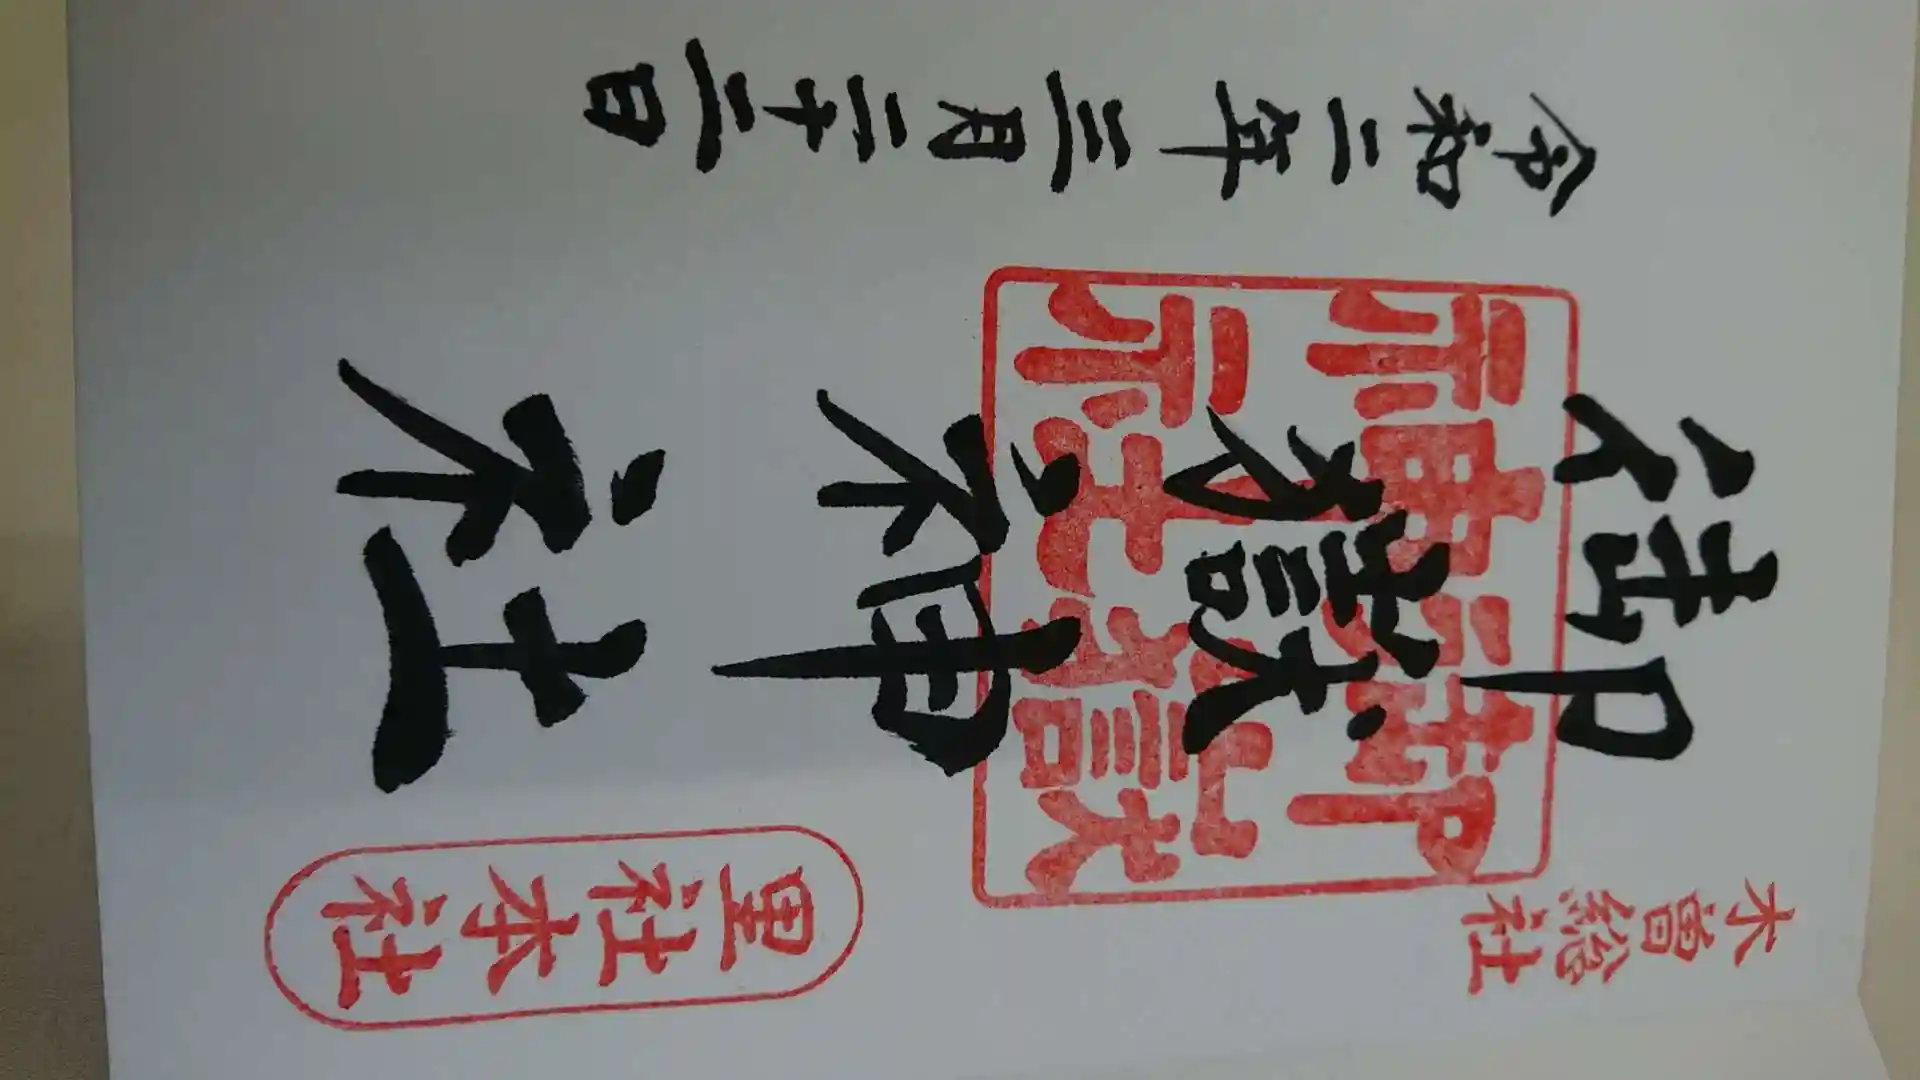 木曽総社
里社本社
御嶽神社
御嶽神社
令和二年三月二十二日